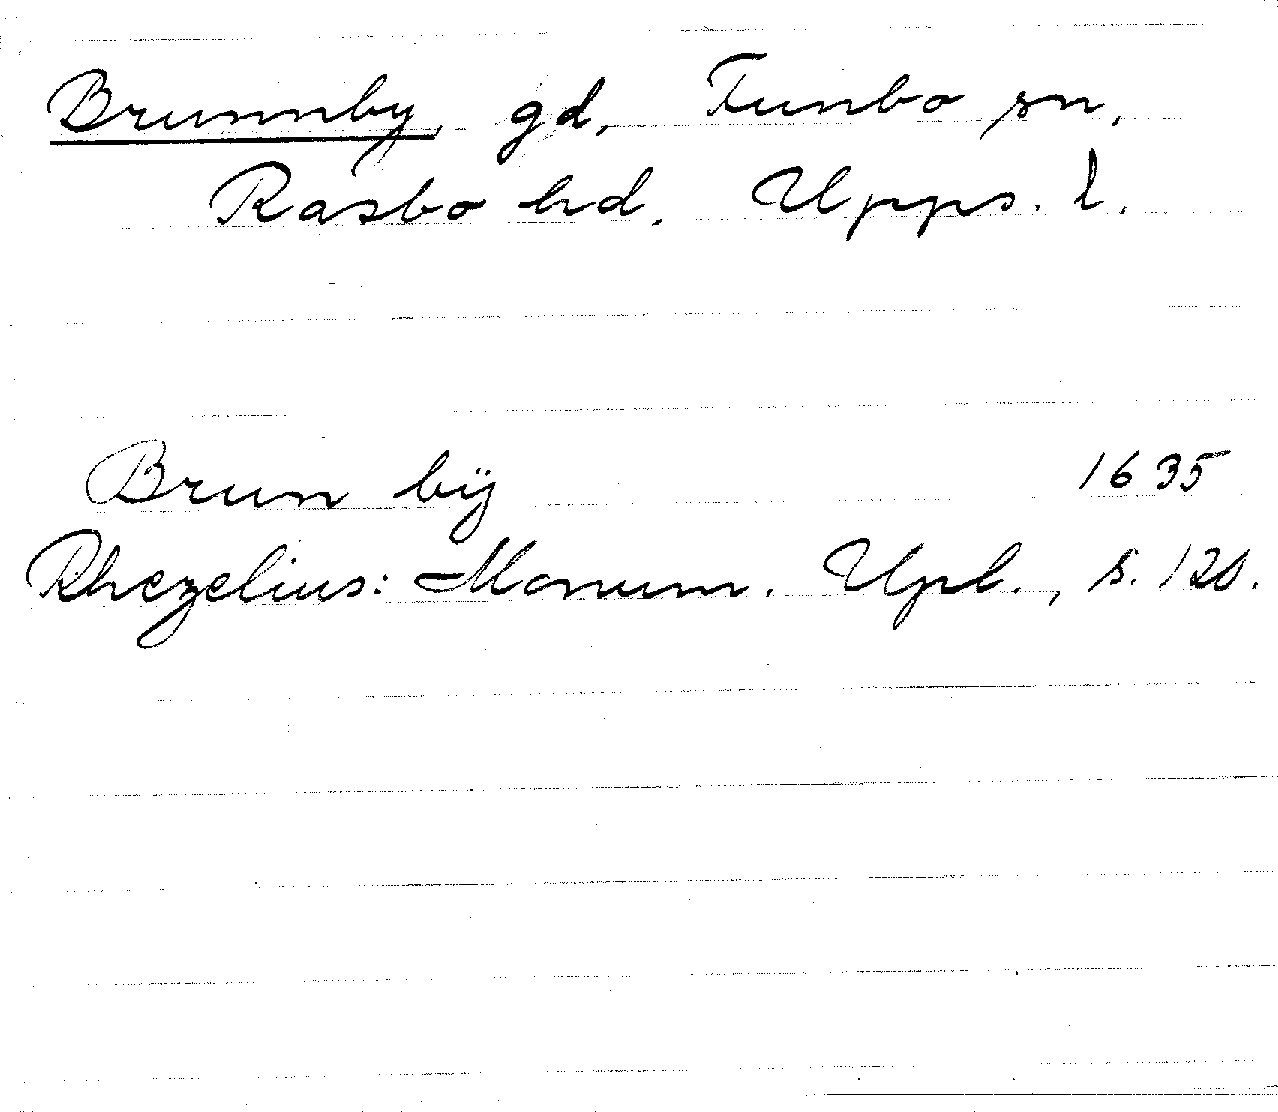 Brunnby, gd, Funbo sn,
Rasbo hd, Upps. l.
Brun bÿ 1635
Rhezelius: Monum. Upl., s. 120.